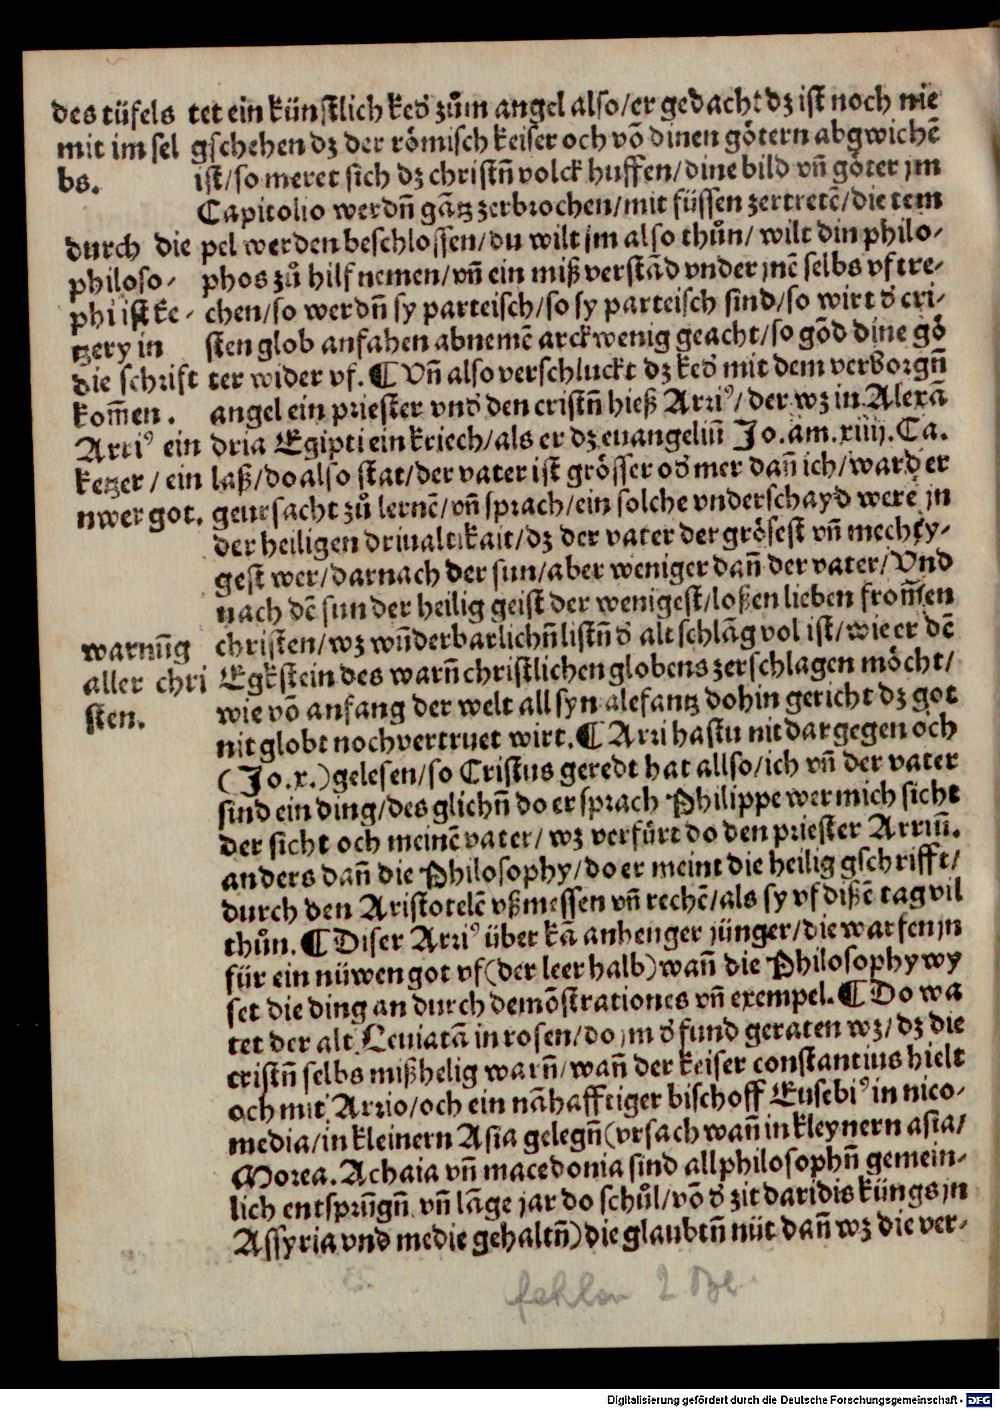 des tüfels
mit im sel
bs.
durch die
philoso-
phi ist ke-
tzery in
die schrift
kom̄en.
Arriꝰ ein
ketzer / ein
nwer got.
warnūg
aller chri
sten.
tet ein künstlich ked᷑ zům angel also/er gedacht dz ist noch nie
gschehen dz der römisch keiser och vō dinen götern abgwichē
ist/so meret sich dz christn̄ volck huffen/dine bild vn̄ göter jm
Capitolio werdn̄ gātz zerbrochen/mit füssen zertretē/die tem
pel werden beschlossen/du wilt jm also thůn/ wilt din philo-
phos zů hilf nemen/vn̄ ein miß verstād vnder jnē selbs vf tre-
chen/so werdn̄ sy parteisch/so sy parteisch sind/so wirt d᷑ cri-
sten glob anfahen abnemē arckwenig geacht/so gōd dine gö
ter wider vf. ¶ Vn̄ also verschluckt dz ked᷑ mit dem verborgn̄
angel ein priester vnd᷑ den cristn̄ hieß Arriꝰ/ der wz in Alexā
dria Egipti ein kriech/als er dz euangeliū Jo.am.xiiij.Ca.
laß/do also stat/der vater ist grösser od᷑ mer dan̄ ich/ward er
geursacht zů lernē/vn̄ sprach/ein solche vnderschayd were jn
der heiligen driualtikait/dz der vater der grösest vn̄ mechty-
gest wer/darnach der sun/aber weniger dan̄ der vater/Vnd
nach dē sun der heilig geist der wenigest/loßen lieben fron̄sen
christen/wz wn̄derbarlichn̄ listn̄ d᷑ alt schlāg vol ist/wie er dē
Egkstein des warn̄ christlichen globens zerschlagen möcht/
wie vō anfang der welt all syn alefantz dohin gericht dz got
nit globt noch vertruet wirt. ¶ Arri hastu nit dargegen och
(Jo.x.)gelesen/so Cristus geredt hat allso/ich vn̄ der vater
sind ein ding/des glichn̄ do er sprach Philippe wer mich sicht
der sicht och meinē vater/ wz verfürt do den priester Arriū.
anders dan̄ die Philosophy/do er meint die heilig gschrifft/
durch den Aristotelē vßmessen vn̄ rechē/als sy vf dißē tag vil
thůn. ¶ Diser Arriꝰ über kā anhenger jünger/die warfen jn
für ein nüwen got vf(der leer halb)wan̄ die Philosophy wy
set die ding an durch demōstrationes vn̄ exempel. ¶ Do wa
tet der alt Leuiatā in rosen/do jm d᷑ fund geraten wz/ dz die
cristn̄ selbs mißhelig warn̄/wan̄ der keiser constantius hielt
och mit Arrio/och ein nāhafftiger bischoff Eusebiꝰ in nico-
media/in kleinern Asia gelegn̄(vrsach wan̄ in kleynern asia/
Morea. Achaia vn̄ macedonia sind all philosophn̄ gemein-
lich entsprūgn̄ vn̄ lāge jar do schůl/vō d᷑ zit daridis küngs jn
Assyria vnd medie gehaltn̄)die glaubtn̄ nüt dan̄ wz die ver-
fehlen 2 Bl.
Digitalisierung gefördert durch die Deutsche Forschungsgemeinschaft - DFG